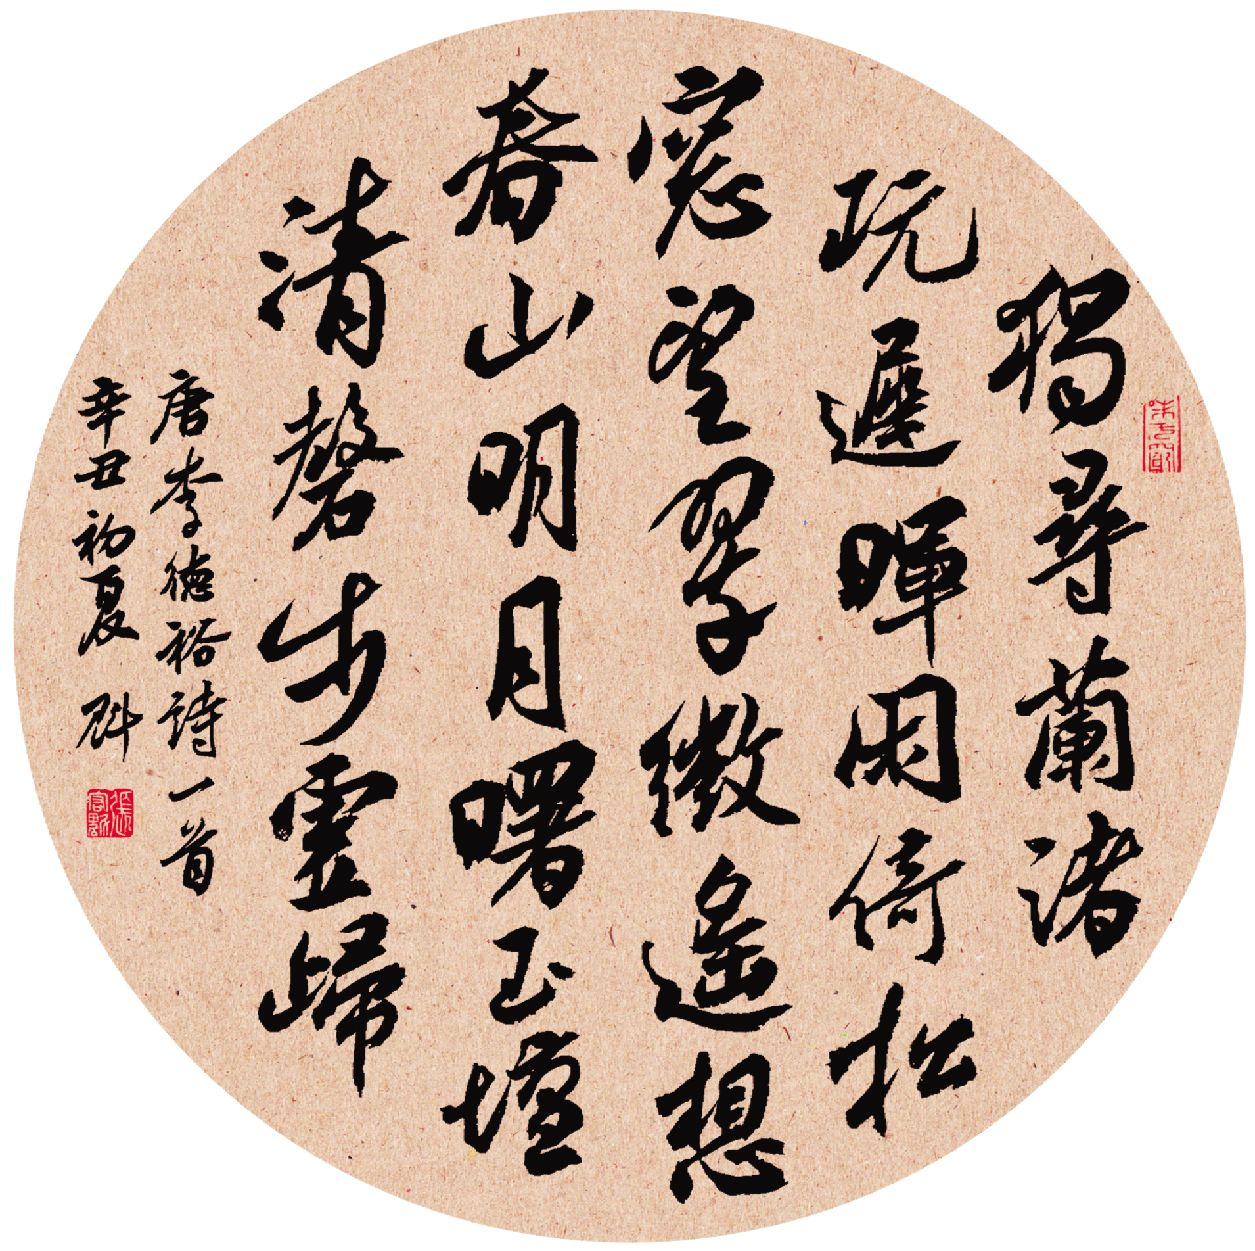 獨尋蘭渚
玩遲暉閑倚松
窓望翠微遙想
春山明月曙玉壇
清磬步虛歸
唐李德裕詩一首
辛丑初夏